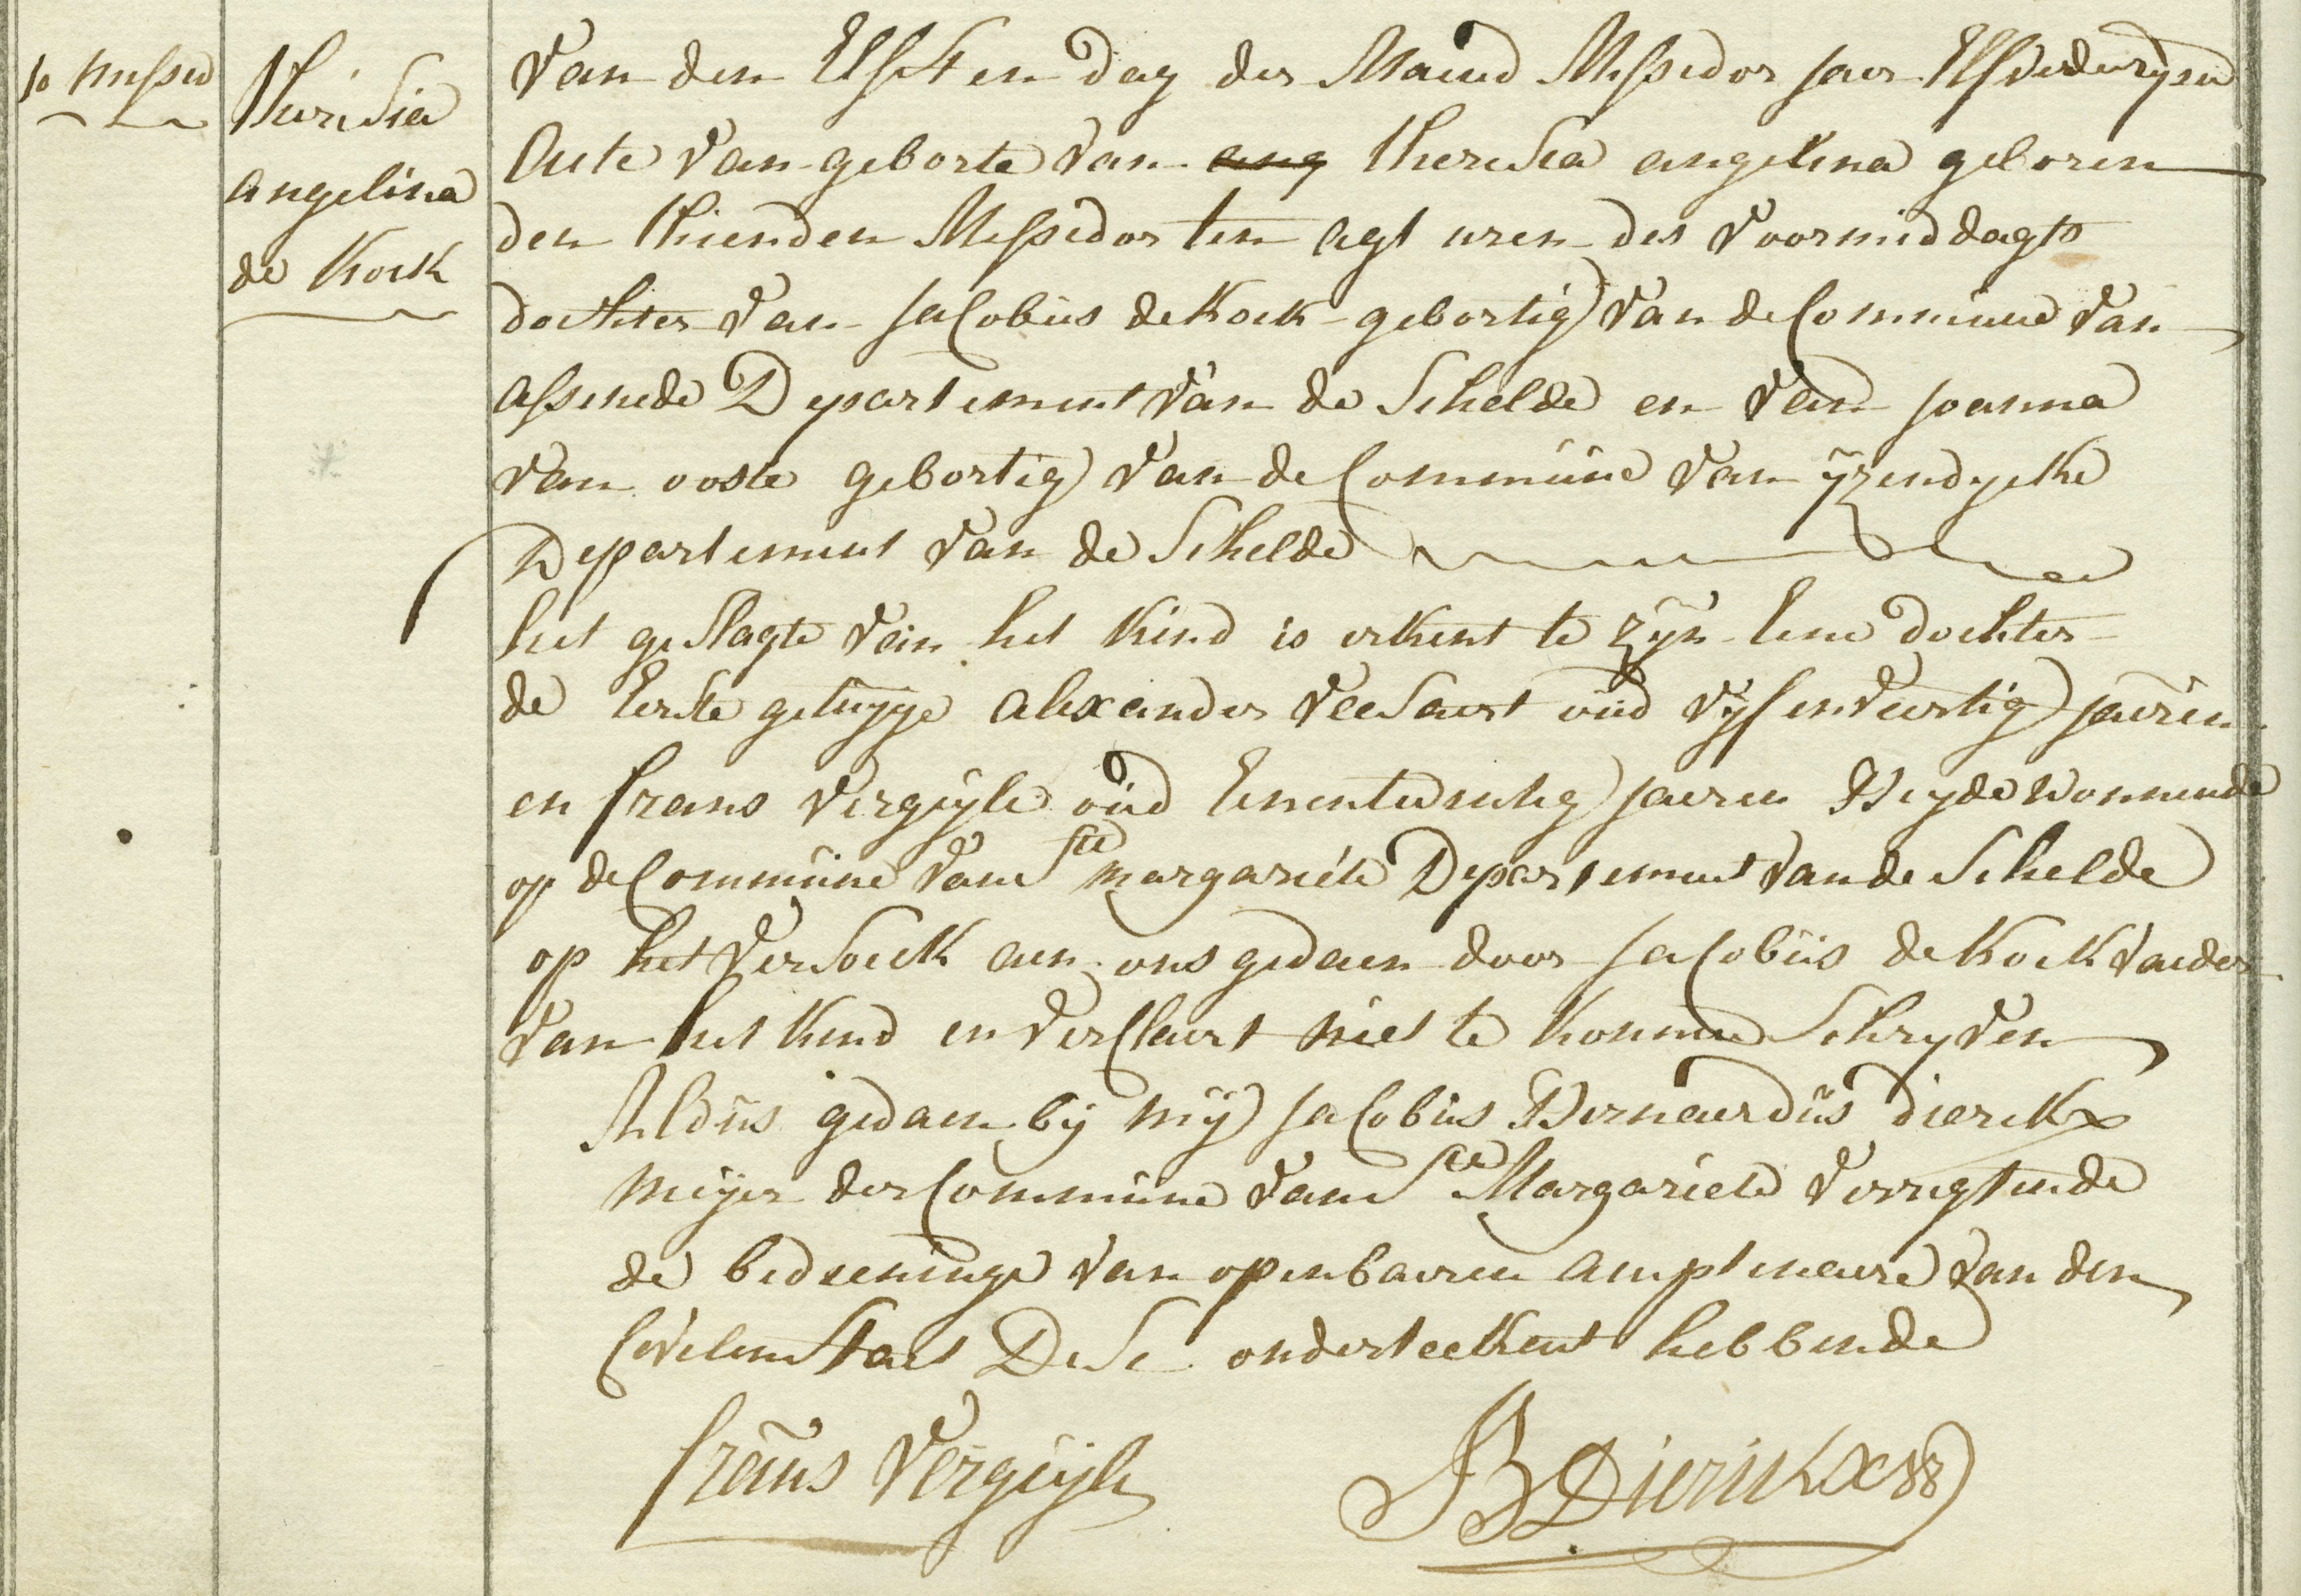 10 Messid
Theresia
angelina
de Kock
Van den Elfsten dag der Maend Messidor Jaer Elf
Acte van geborte van ang theresia angelina geboren
den thienden Messidor ten agt uren des voormiddagts
dochter van Jacobus de Kock gebortig van de Commune van
assenede Departement van de Schelde en van Joanna
van ooste gebortig van de Commune van ijzendycke
Departement van de Schelde
het geslagte van het kind is erkent te zijn Eene dochter
de Eerste getuyge alexander veesaert oud vijf en veertig jaeren
en frans verguijle oud Eenentwintig jaeren Beyde wonnende
op de Commune van Ste margariete Departement van de Schelde
op het versoeck aen ons gedaen door Jacobus de Kock vaeder
van het kind en verclaert niet te konnen schryven
Aldus gedaen bij mij Jacobus Bernaerdus dierckx
meijer der Commune van Ste Margariete verrigtende
de bedieninge van openbaeren ampteneaere van den
Civilen Staet Dese onderteekent hebbende
frans Verguijle
JB Dierickx